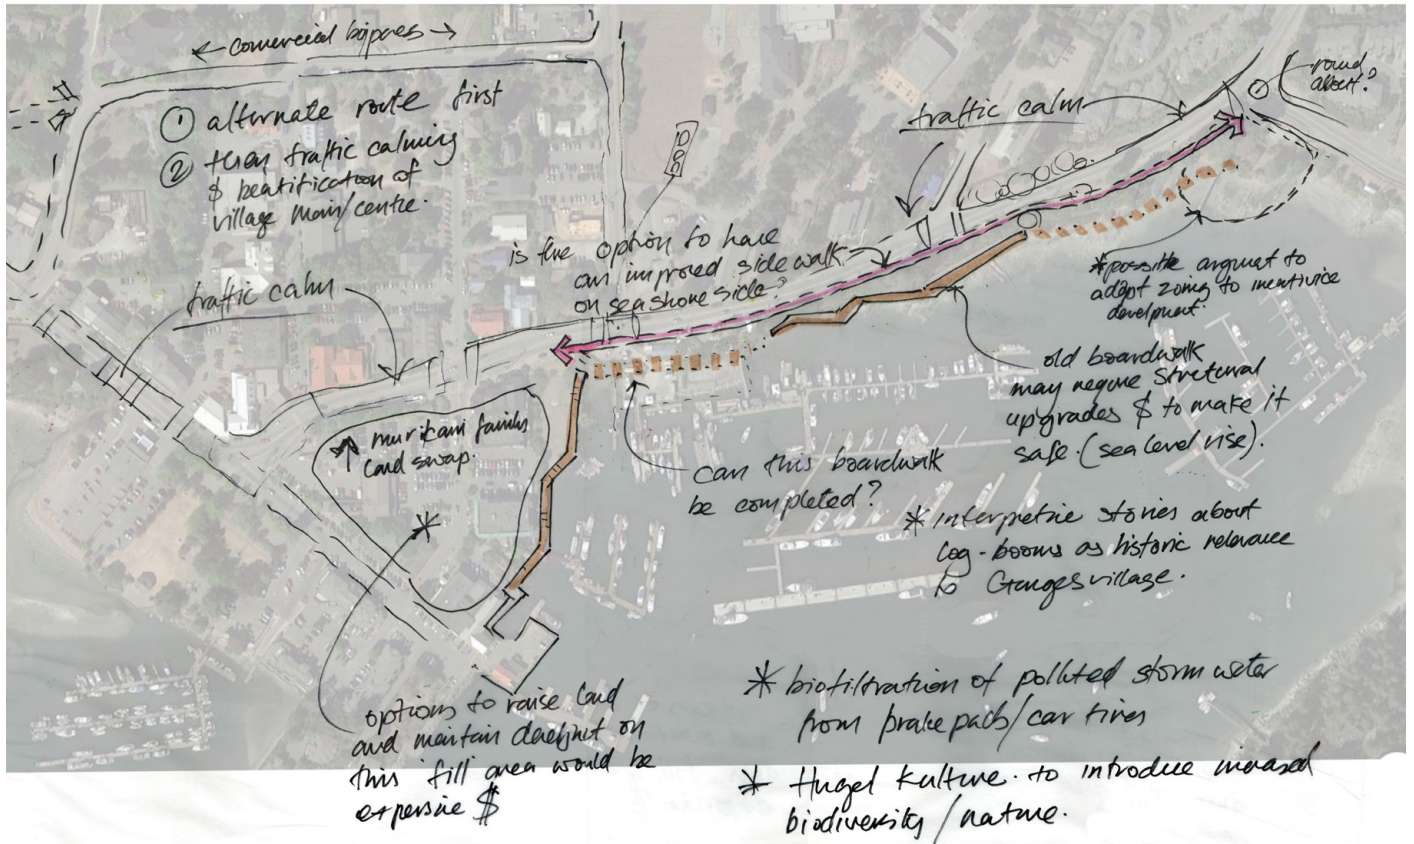 ← comercial bypass →
① alternate route first
② then traffic calming
& beatification of
village main/centre.
traffic calm
round
about?
traffic calm
is the option to have
an improved side walk
on seashore side?
* possible argument to
adapt zoning to incentivice
development.
old boardwalk
may require structural
upgrades $ to make it
safe. (sea level rise).
murikami family
land swap.
can this boardwalk
be completed?
* Interpretive stories about
log-booms as historic relevance
to Ganges village.
* biofiltration of polluted storm water
from brake pads/car tires
options to raise land
and maintain development on
this "fill" area would be
expensive $
* Hugel kulture. to introduce increased
biodiversity/nature.